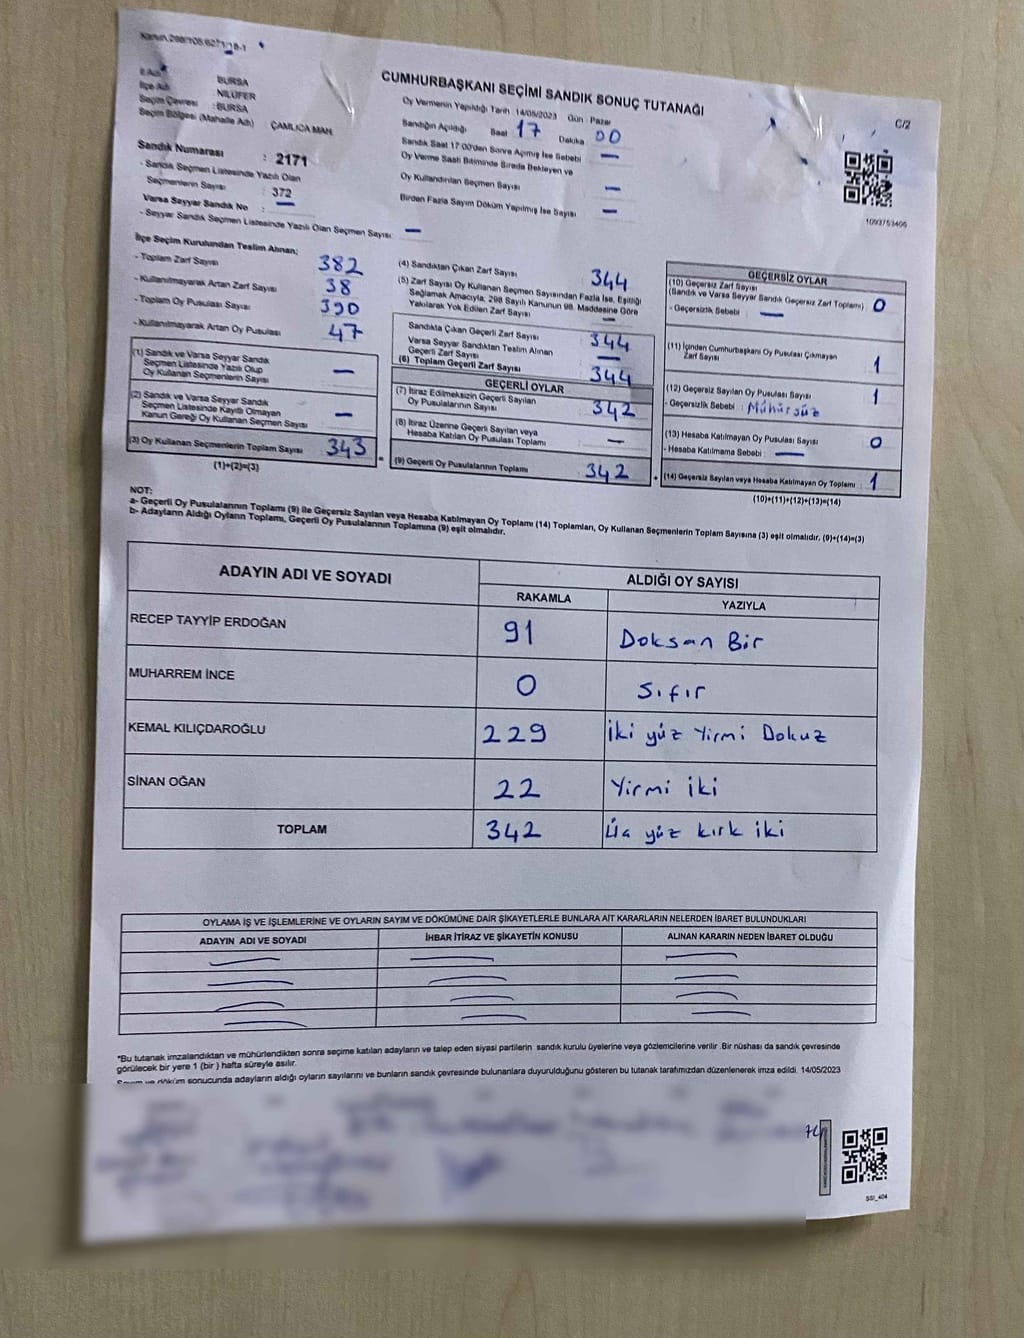 Kanun.298/105/6271/18-1
CUMHURBAŞKANI SEÇİMİ SANDIK SONUÇ TUTANAĞI
C/2
İl Adı : BURSA
İlçe Adı : NİLÜFER
Seçim Çevresi : BURSA
Seçim Bölgesi (Mahalle Adı) ÇAMLICA MAH.
Sandık Numarası : 2171
- Sandık Seçmen Listesinde Yazılı Olan
Seçmenlerin Sayısı : 372
Varsa Seyyar Sandık No : —
- Seyyar Sandık Seçmen Listesinde Yazılı Olan Seçmen Sayısı: —
Oy Vermenin Yapıldığı Tarih :14/05/2023 Gün : Pazar
Sandığın Açıldığı Saat 17 Dakika 00
Sandık Saat 17:00'den Sonra Açılmış İse Sebebi —
Oy Verme Saati Bitiminde Sırada Bekleyen ve
Oy Kullandırılan Seçmen Sayısı —
Birden Fazla Sayım Döküm Yapılmış İse Sayısı —
1093753406
İlçe Seçim Kurulundan Teslim Alınan;
- Toplam Zarf Sayısı 382
- Kullanılmayarak Artan Zarf Sayısı 38
- Toplam Oy Pusulası Sayısı 390
- Kullanılmayarak Artan Oy Pusulası 47
(1) Sandık ve Varsa Seyyar Sandık
Seçmen Listesinde Yazılı Olup
Oy Kullanan Seçmenlerin Sayısı —
(2) Sandık ve Varsa Seyyar Sandık
Seçmen Listesinde Kayıtlı Olmayan
Kanun Gereği Oy Kullanan Seçmen Sayısı —
(3) Oy Kullanan Seçmenlerin Toplam Sayısı 343
(1)+(2)=(3)
=
(4) Sandıktan Çıkan Zarf Sayısı 344
(5) Zarf Sayısı Oy Kullanan Seçmen Sayısından Fazla İse, Eşitliği
Sağlamak Amacıyla; 298 Sayılı Kanunun 98. Maddesine Göre
Yakılarak Yok Edilen Zarf Sayısı —
Sandıkta Çıkan Geçerli Zarf Sayısı 344
Varsa Seyyar Sandıktan Teslim Alınan
Geçerli Zarf Sayısı —
(6) Toplam Geçerli Zarf Sayısı 344
GEÇERLİ OYLAR
(7) İtiraz Edilmeksizin Geçerli Sayılan
Oy Pusulalarının Sayısı 342
(8) İtiraz Üzerine Geçerli Sayılan veya
Hesaba Katılan Oy Pusulası Toplamı —
(9) Geçerli Oy Pusulalarının Toplamı 342
+
GEÇERSİZ OYLAR
(10) Geçersiz Zarf Sayısı
(Sandık ve Varsa Seyyar Sandık Geçersiz Zarf Toplamı) 0
- Geçersizlik Sebebi : —
(11) İçinden Cumhurbaşkanı Oy Pusulası Çıkmayan
Zarf Sayısı 1
(12) Geçersiz Sayılan Oy Pusulası Sayısı 1
- Geçersizlik Sebebi : Mühürsüz
(13) Hesaba Katılmayan Oy Pusulası Sayısı 0
- Hesaba Katılmama Sebebi : —
(14) Geçersiz Sayılan veya Hesaba Katılmayan Oy Toplamı 1
(10)+(11)+(12)+(13)=(14)
NOT:
a- Geçerli Oy Pusulalarının Toplamı (9) ile Geçersiz Sayılan veya Hesaba Katılmayan Oy Toplamı (14) Toplamları, Oy Kullanan Seçmenlerin Toplam Sayısına (3) eşit olmalıdır, (9)+(14)=(3)
b- Adayların Aldığı Oyların Toplamı, Geçerli Oy Pusulalarının Toplamına (9) eşit olmalıdır.
ADAYIN ADI VE SOYADI ALDIĞI OY SAYISI
RAKAMLA YAZIYLA
RECEP TAYYİP ERDOĞAN 91 Doksan Bir
MUHARREM İNCE 0 Sıfır
KEMAL KILIÇDAROĞLU 229 İki yüz Yirmi Dokuz
SİNAN OĞAN 22 Yirmi iki
TOPLAM 342 Üç yüz kırk iki
OYLAMA İŞ VE İŞLEMLERİNE VE OYLARIN SAYIM VE DÖKÜMÜNE DAİR ŞİKAYETLERLE BUNLARA AİT KARARLARIN NELERDEN İBARET BULUNDUKLARI
ADAYIN ADI VE SOYADI İHBAR İTİRAZ VE ŞİKAYETİN KONUSU ALINAN KARARIN NEDEN İBARET OLDUĞU
*Bu tutanak imzalandıktan ve mühürlendikten sonra seçime katılan adayların ve talep eden siyasi partilerin sandık kurulu üyelerine veya gözlemcilerine verilir .Bir nüshası da sandık çevresinde
görülecek bir yere 1 (bir ) hafta süreyle asılır.
Sayım ve döküm sonucunda adayların aldığı oyların sayılarını ve bunların sandık çevresinde bulunanlara duyurulduğunu gösteren bu tutanak tarafımızdan düzenlenerek imza edildi. 14/05/2023
SSI_404